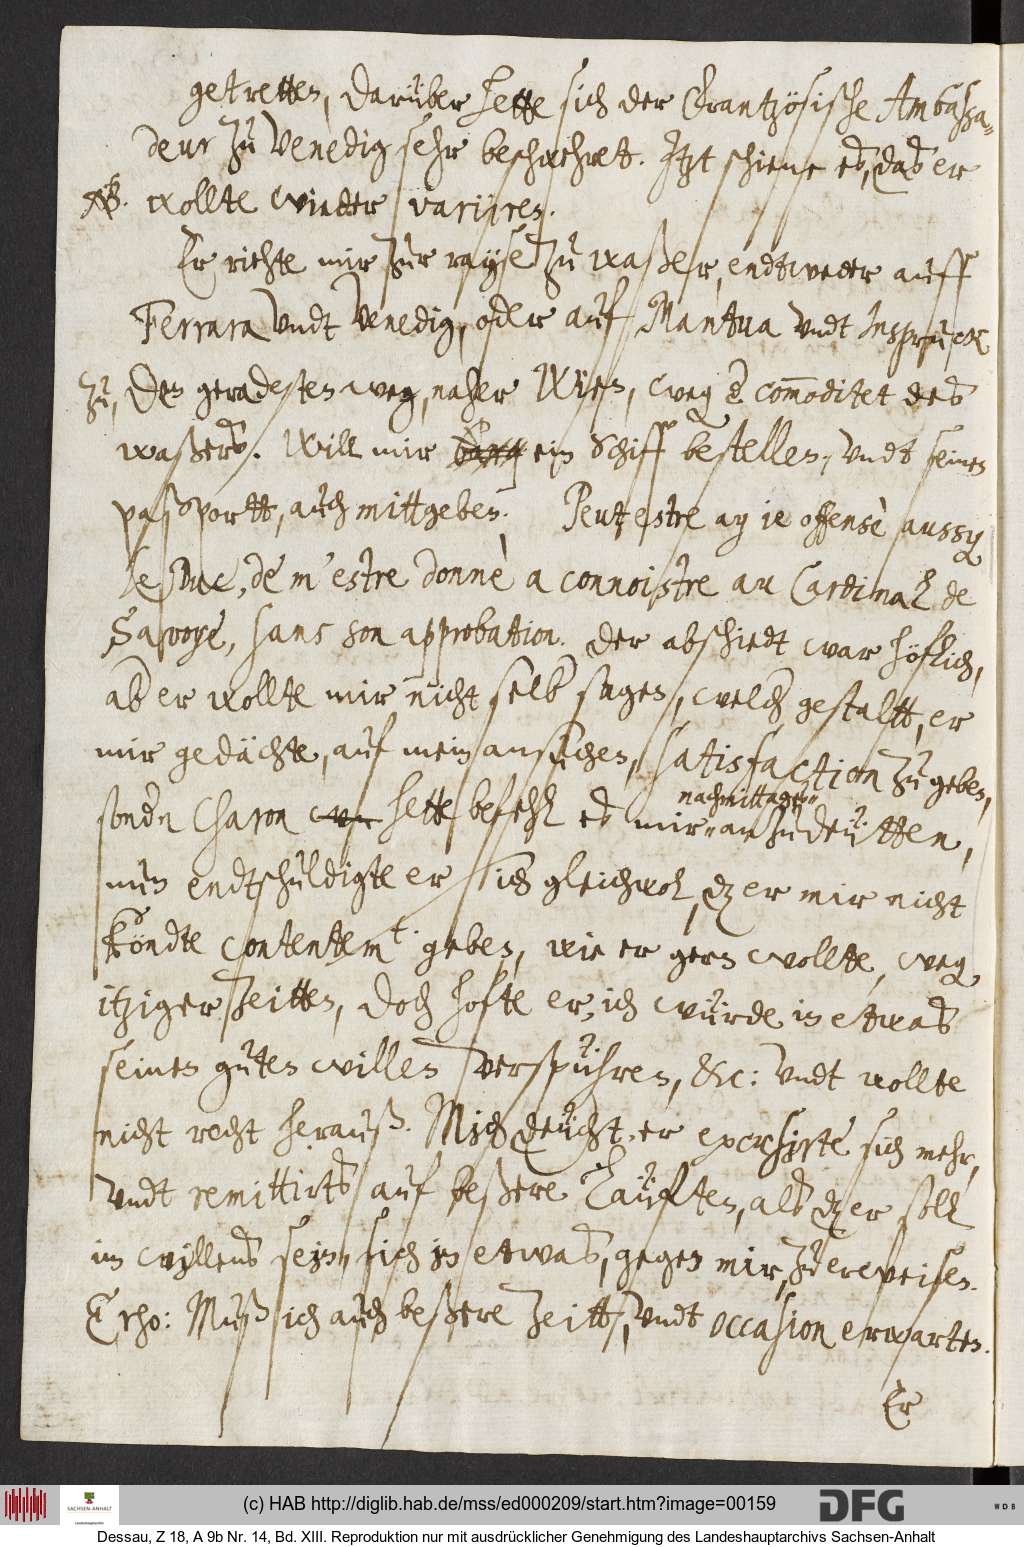 getretten, darüber hette sich der Frantzösische Ambaßa-
deur zu Venedig sehr beschwehret. Itzt schiene es, das er
NB. wollte wieder variiren.
Er riehte mir zur rayse zu waßer, endtweder auff
Ferrara vndt Venedig, oder auf Mantua vndt Insprugk
zu, den geradesten weg, naher Wien, weg commoditet des
waßers. Will mir ein Schiff bestellen, vndt seinen
paßportt, auch mittgeben. Peut estre ay ie offensè aussy
le Duc, de m'estre donnè a connoistre au Cardinal de
Savoye, sans son approbation. Der abschiedt war höflich,
ab er wollte mir nicht selb sagen, welch gestaltt, er
mir gedächte, auf mein ansuchen, satisfaction zu geben,
nachmittages
sondn Charon hette befehl es mir anzudeütten,
nun endtschuldigte er sich gleichwol, dz er mir nicht
köndte contentemt. geben, wie er gern wollte, weg
itziger zeitten, doch hofte er, ich würde in etwas
seinen guten willen verspühren, &c: vndt wollte
nicht recht herauß. Mich deücht, er excusirte sich mehr,
vndt remittirts auf beßere laüften, als dz er sollt
im willens sein, sich in etwas, gegen mir, zu ereweisen.
Ergo: Muß ich auch beßere zeitt, vndt occasion erwarten.
Er
(c) HAB http://diglib.hab.de/mss/ed000209/start.htm?image=00159
SACHSEN-ANHALT
DFG
WDB
Dessau, Z 18, A 9b Nr. 14, Bd. XIII. Reproduktion nur mit ausdrücklicher Genehmigung des Landeshauptarchivs Sachsen-Anhalt